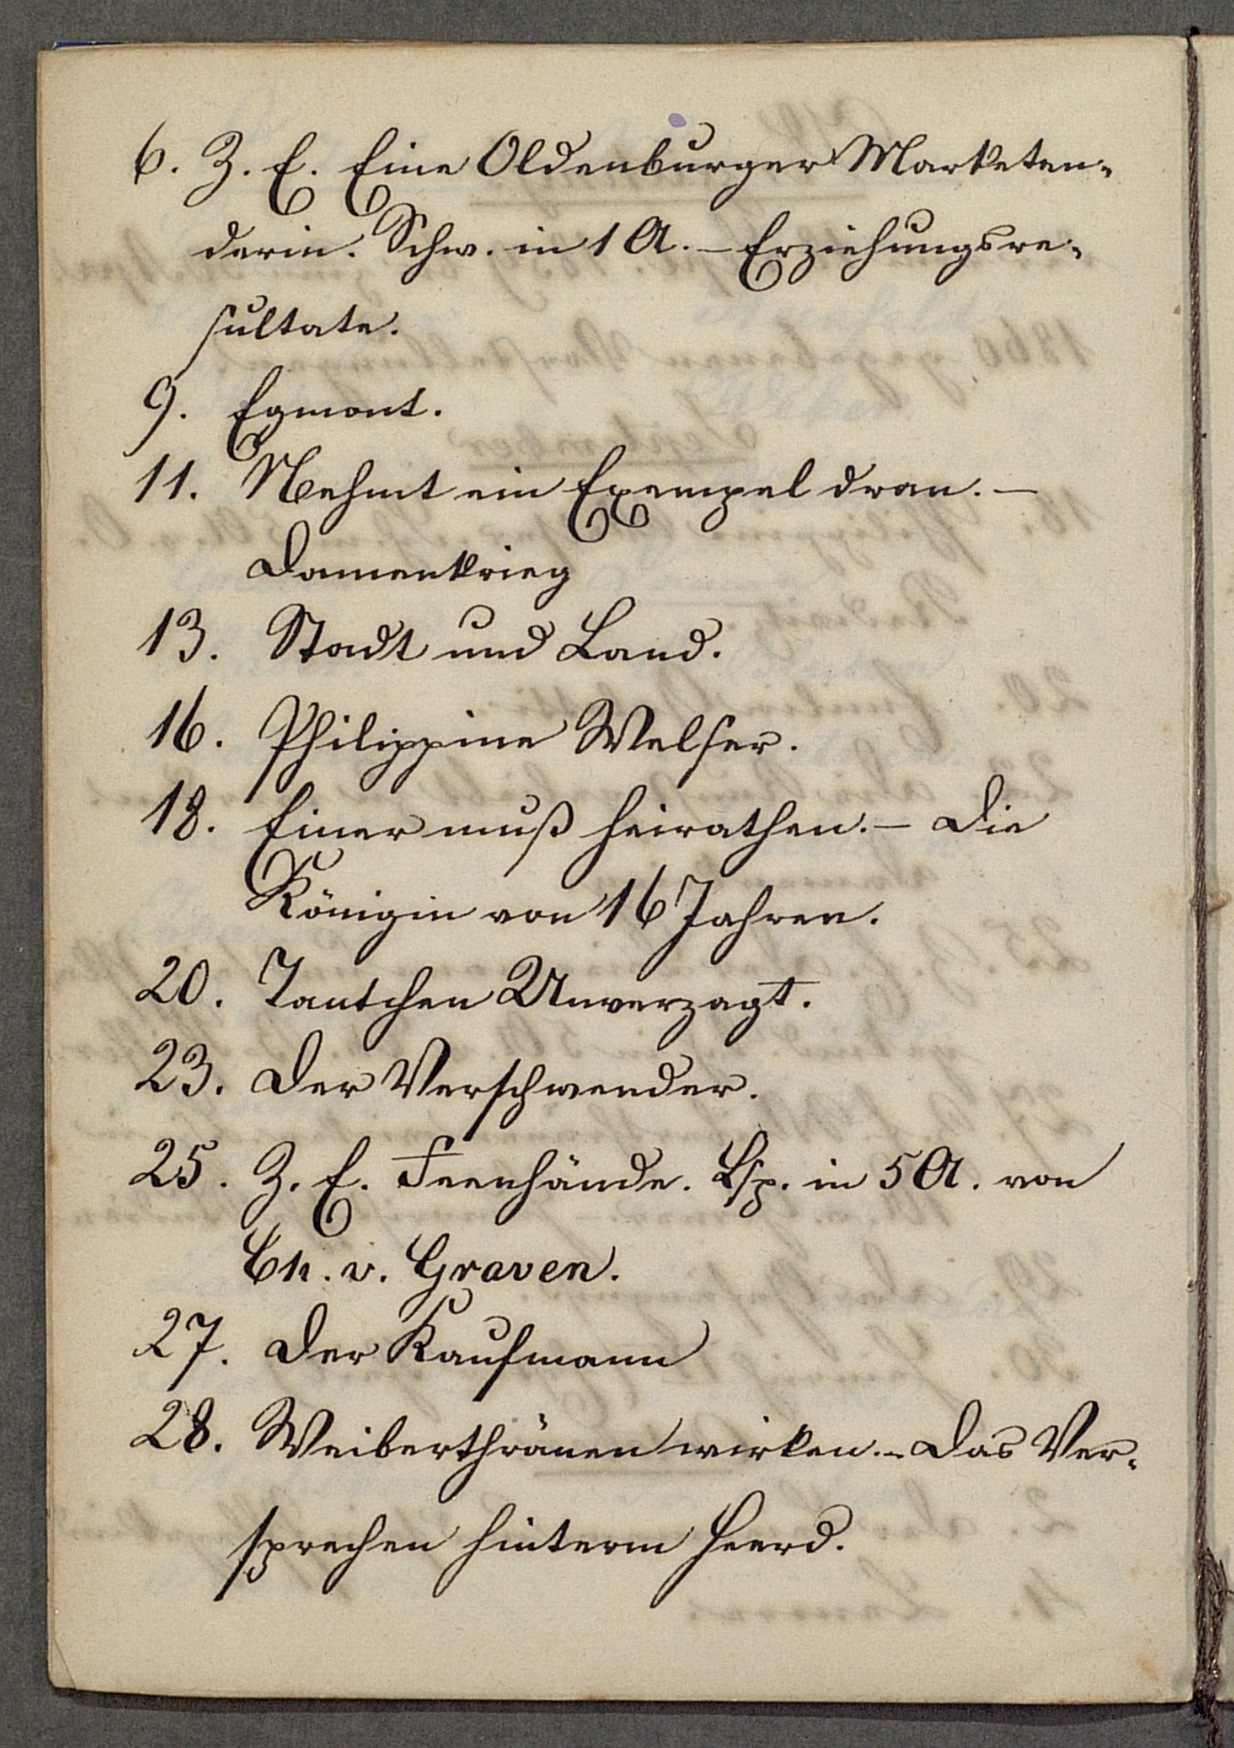 6. Z. E. Eine Oldenburger Marketen-
derin. Schw. in 1 A. – Erziehungsre-
sultate.
9. Egmont.
11. Nehmt ein Exempel dran. –
Damenkrieg
13. Stadt und Land.
16. Philippine Welser.
18. Einer muß heirathen. – Die
Königin von 16 Jahren.
20. Tantchen Unverzagt.
23. Der Verschwender.
25. Z. E. Feenhände. Lsp. in 5 A. von
Ch. v. Graven.
27. Der Kaufmann
28. Weiberthränen wirken. – Das Ver-
sprechen hinterm Heerd.